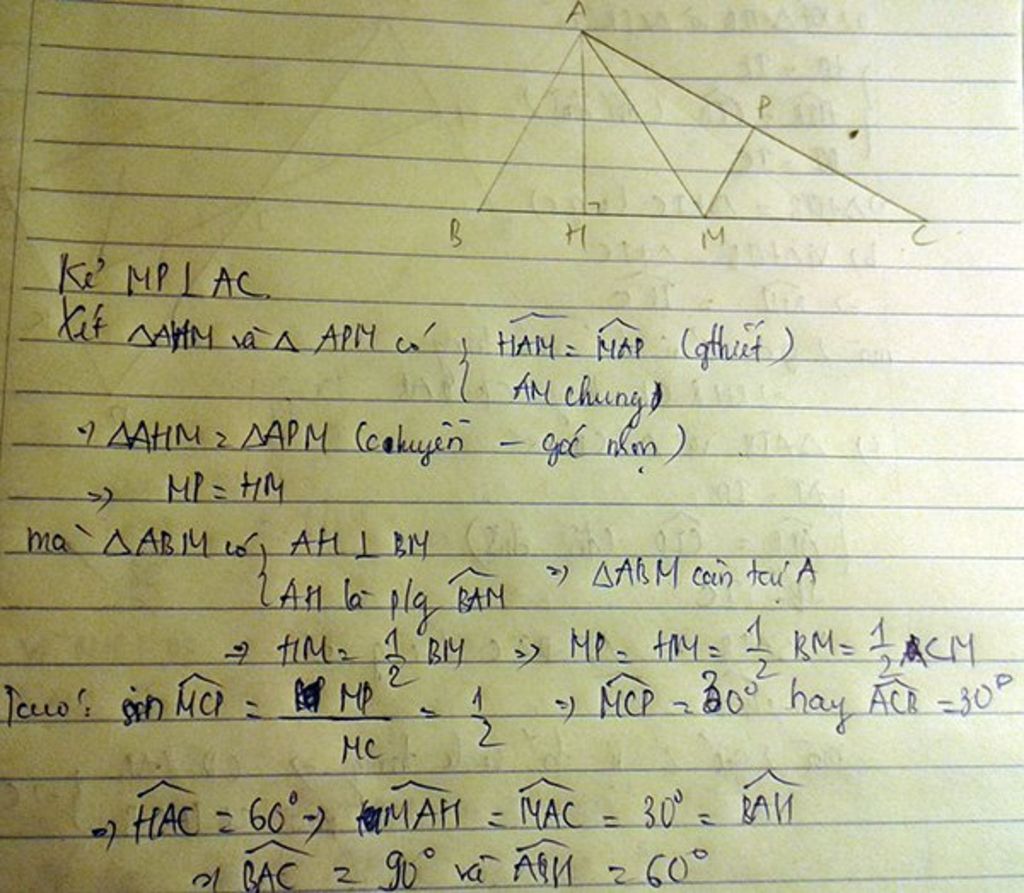 A
P
B H M C
Kẻ MP ⊥ AC.
Xét △AHM và △ APM có { HAM = MAP (gthiết)
AM chung
⇒ △AHM = △APM (chuyền – góc nhọn)
⇒ MP = HM
mà △ABM có { AH ⊥ BM
AH là p/g BAM ⇒ △ABM cân tại A
⇒ HM = 1/2 BM ⇒ MP = HM = 1/2 BM = 1/2 CM
Ta có: sin MCP = MP/MC = 1/2 ⇒ MCP = 30° hay ACB = 30°
⇒ HAC = 60° ⇒ MAH = MAC = 30° = BAH
⇒ BAC = 90° và ABH = 60°